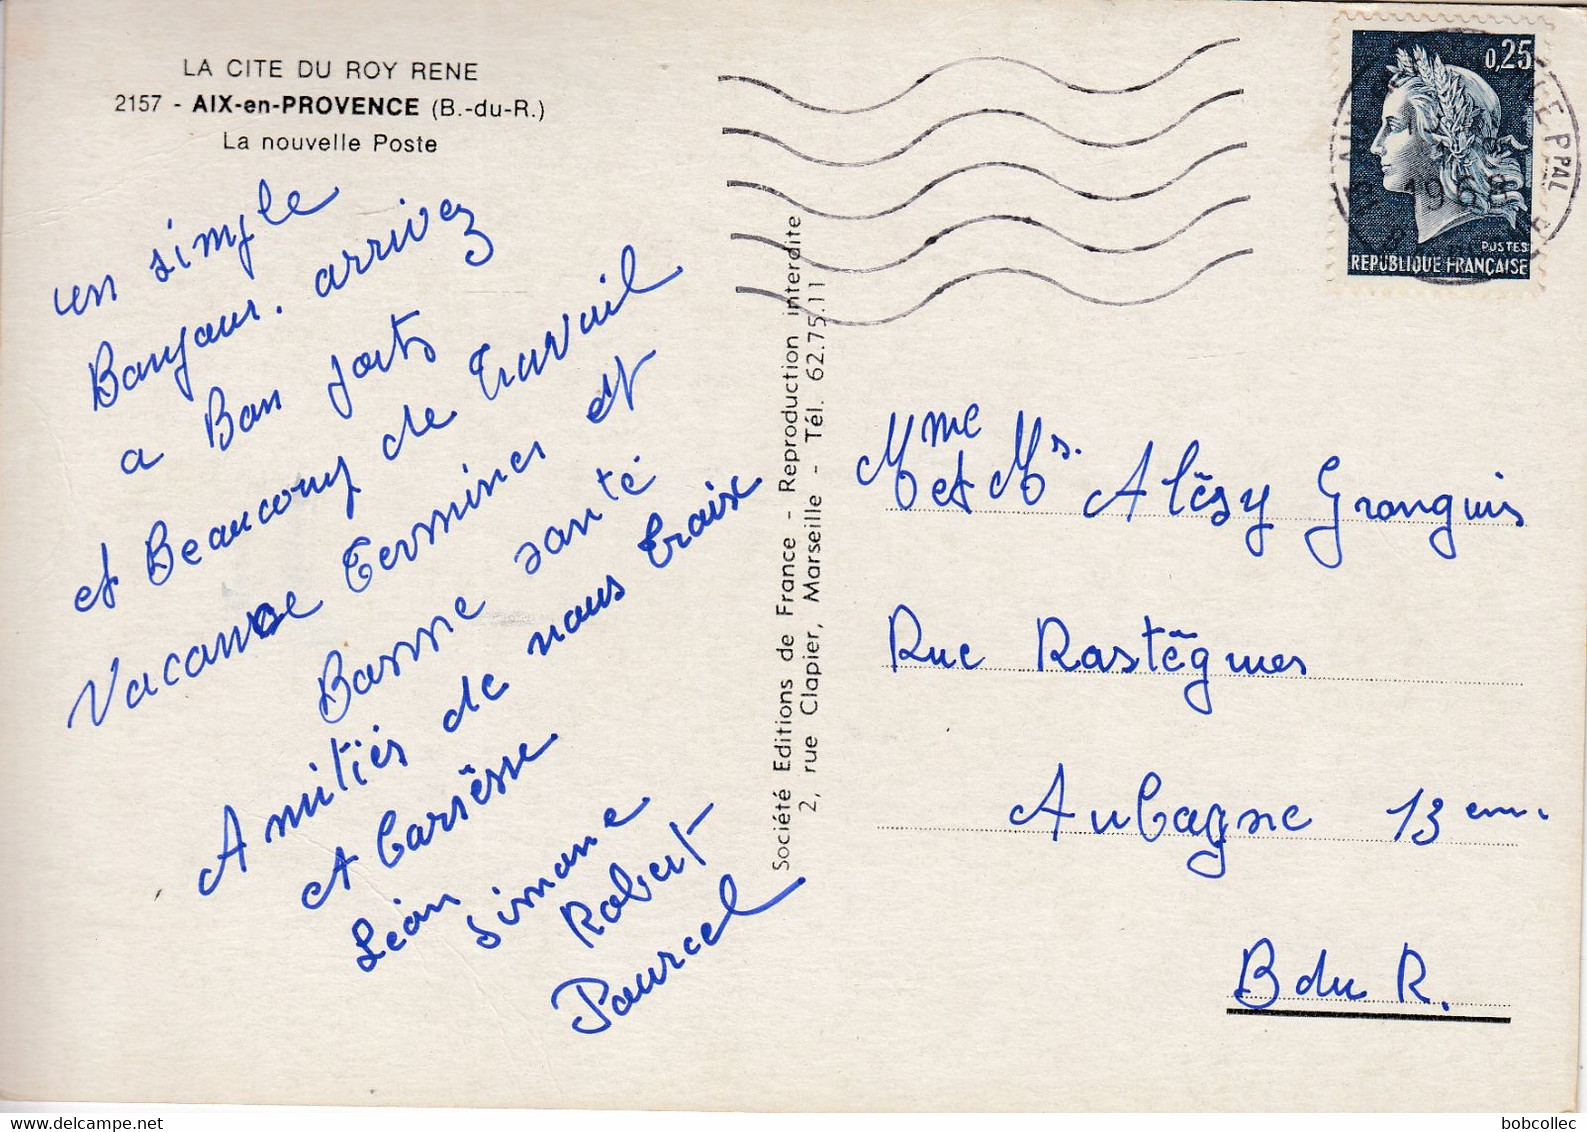 LA CITE DU ROY RENE
2157 - AIX-en-PROVENCE (B.-du-R.)
La nouvelle Poste
un simple
Bonjour. arrivez
a Bon ports
et Beaucoup de travail
Vacance terminés et
Bonne santé
Amitiés de nous troix
et Carésse
Léon Simone
Robert
Pourcel
Société Editions de France - Reproduction interdite
2, rue Clapier, Marseille - Tél. 62.75.11
0,25
POSTES
REPUBLIQUE FRANÇAISE
PPAL
1968
Mme et Ms. Alésy
Rue Rastègues
Aubagne 13 em.
B du R.
bobcollec